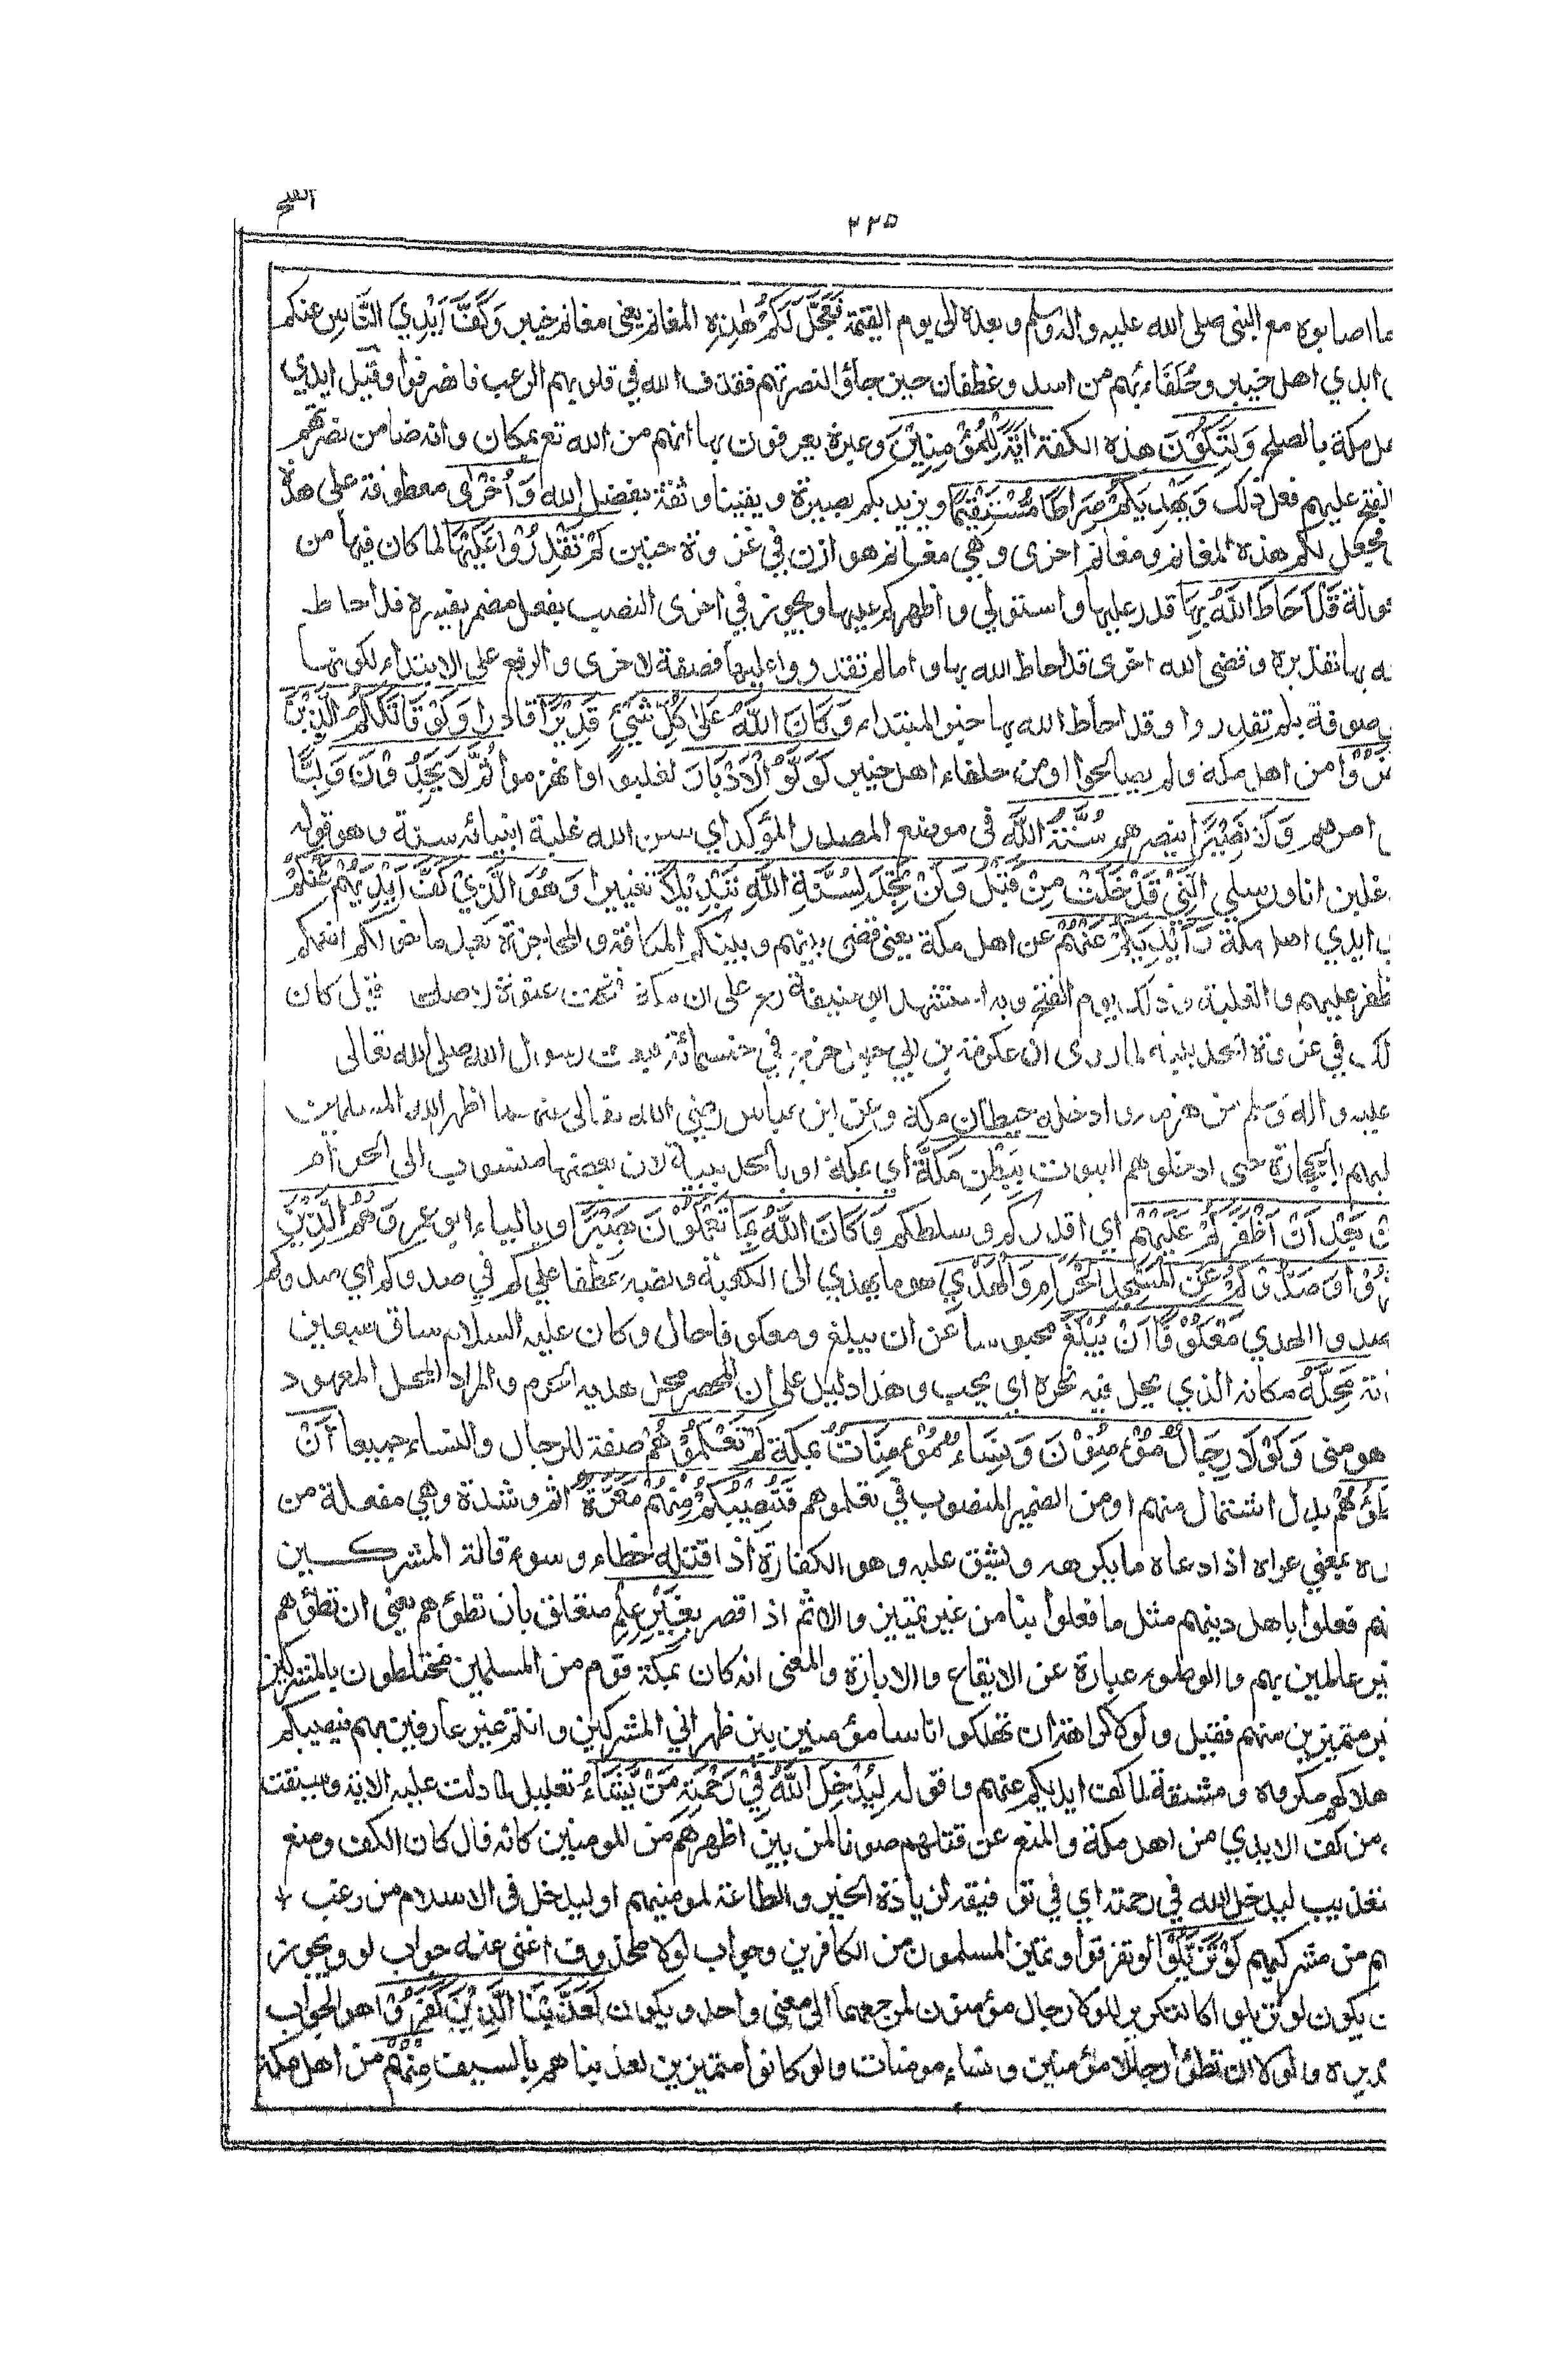 الفتح
٢٣٥
ما اصابوه مع النبى صلى الله عليه واله وسلم وبعده الى يوم القيمة فَعَجَّلَ لَكُمْ هٰذِهِ المغانم يعنى مغانم خيبر وَكَفَّ اَيْدِيَ النَّاسِ عنكم
ايدي اهل خيبر وحُلَفَاءَهم من اسد وغطفان حين جاؤ النصرتهم فقذف الله في قلوبهم الرعب فانصرفوا وقيل ايدي
هل مكة بالصلح وَلِتَكُوْنَ هذه الكفة اٰيَةً لِّلْمُؤْمِنِيْنَ وعبرة يعرفون بها انهم من الله تع بمكان وانه ضامن نصرتهم
الفتح عليهم فعل ذلك وَيَهْدِيَكُمْ صِرَاطًا مُّسْتَقِيْمًا ويزيدكم بصيرة ويقينا وثقة بفضل الله وَاُخْرٰى معطوفة على هذه
فجعل لكم هذه المغانم ومغانم اخرى وهي مغانم هوازن في غزوة حنين لَمْ تَقْدِرُوْا عَلَيْهَا لما كان فيها من
جولة قَدْ اَحَاطَ اللّٰهُ بِهَا قدر عليها واستولى واظهركم عليها ويجوز في اخرى النصب بفعل مضمر يفسره قد احاط
له بها تقديره وقضى الله اخرى قد احاط الله بها واما لم تقدروا عليها فصفة لاخرى والرفع على الابتداء لكونها
موصوفة بلم تقدروا وقد احاط الله بها خبر المبتداء وَكَانَ اللّٰهُ عَلٰى كُلِّ شَيْئٍ قَدِيْرًا قادرا وَلَوْ قَاتَلَكُمُ الَّذِيْنَ
كَفَرُوْا من اهل مكة ولم يصالحوا او من حلفاء اهل خيبر لَوَلَّوُ الْاَدْبَارَ لغلبوا وانهزموا ثُمَّ لَا يَجِدُوْنَ وَلِيًّا
امرهم وَلَا نَصِيْرًا ينصرهم سُنَّةَ اللّٰهِ فى موضع المصدر المؤكد اي سن الله غلبة انبيائه سنة وهو قوله
غلبن انا ورسلي الَّتِيْ قَدْ خَلَتْ مِنْ قَبْلُ وَلَنْ تَجِدَ لِسُنَّةِ اللّٰهِ تَبْدِيْلًا تغييرا وَهُوَ الَّذِيْ كَفَّ اَيْدِيَهُمْ عَنْكُمْ
ايدي اهل مكة وَاَيْدِيَكُمْ عَنْهُمْ عن اهل مكة يعنى قضى بينهم وبينكم المكافة والمحاجزة بعد ما خولكم
ظفر عليهم والغلبة وذلك يوم الفتح وبه استشهد ابو حنيفة رح على ان مكة فتحت عنوة لا صلحا وقيل كان
لك في غزوة الحديبية لما روى ان عكرمة بن ابي جهل خرج في خمسمائة فبعث رسول الله صلى الله تعالى
عليه واله وسلم من هزمه وادخله حيطان مكة وعن ابن عباس رضي الله تعالى عنهما اظهر الله المسلمين
عليهم بالحجارة حتى ادخلوهم البيوت بِبَطْنِ مَكَّةَ اي بمكة او بالحديبية لان بعضها منسوب الى الحرام
مِنْ بَعْدِ اَنْ اَظْفَرَكُمْ عَلَيْهِمْ اي اقدركم وسلطكم وَكَانَ اللّٰهُ بِمَا تَعْمَلُوْنَ بَصِيْرًا وبالياء ابو عمرو هُمُ الَّذِيْنَ
كَفَرُوْا وَصَدُّوْكُمْ عَنِ الْمَسْجِدِ الْحَرَامِ وَالْهَدْيَ هو ما يهدي الى الكعبة ونصبه عطفا على كم في صدوكم اي صدوكم
صدوا الهدي مَعْكُوْفًا اَنْ يَّبْلُغَ محبوسا عن ان يبلغ ومعكوفا حال وكان عليه السلام ساق سبعين
بدنة مَحِلَّهٗ مكانه الذي يحل فيه نحره اي يجب وهذا دليل على ان المحصر محل هديه الحرم والمراد المحل المعهود
هو منى وَلَوْلَا رِجَالٌ مُّؤْمِنُوْنَ وَنِسَاءٌ مُّؤْمِنَاتٌ بمكة لَمْ تَعْلَمُوْهُمْ صفة للرجال والنساء جميعا اَنْ
تَطَئُوْهُمْ بدل اشتمال منهم او من الضمير المنصوب في تعلموهم فَتُصِيْبَكُمْ مِنْهُمْ مَّعَرَّةٌ اثم وشدة وهي مفعلة من
بمعنى عراه اذا دعاه ما يكرهه ويشق عليه وهو الكفارة اذا قتله خطاء وسوء قالة المشركين
انهم فعلوا باهل دينهم مثل ما فعلوا بنا من غير تميز والاثم اذا قصر بِغَيْرِ عِلْمٍ متعلق بان تطؤهم يعنى ان تطؤهم
غير عالمين بهم والوطوء عبارة عن الايقاع والابادة والمعنى انه كان بمكة قوم من المسلمين مختلطون بالمشركين
غير متميزين منهم فقيل ولولا كراهة ان تهلكوا اناسا مؤمنين بين ظهراني المشركين وانتم غير عارفين بهم فيصيبكم
هلاكهم مكروه ومشقة لما كف ايديكم عنهم وقوله لِيُدْخِلَ اللّٰهُ فِيْ رَحْمَتِهٖ مَنْ يَّشَاءُ تعليل لما دلت عليه الاية وسيقت
من كف الايدي من اهل مكة والمنع عن قتلهم صونا لمن بين اظهرهم من المومنين كانه قال كان الكف ومنع
تعذيب ليدخل الله في رحمته اي في توفيقه لزيادة الخير والطاعة لمومنيهم او ليدخل فى الاسلام من رغب
هم من مشركيهم لَوْ تَزَيَّلُوْا لو تفرقوا وتميز المسلمون من الكافرين وجواب لولا محذوف اغنى عنه جواب لو ويجوز
ن يكون لو تزيلوا كالتكرير للولا رجال مؤمنون لمرجعهما الى معنى واحد ويكون لَعَذَّبْنَا الَّذِيْنَ كَفَرُوْا هو الجواب
تقديره ولولا ان تطؤا رجالا مؤمنين ونساء مومنات ولو كانوا متميزين لعذبناهم بالسيف مِنْهُمْ من اهل مكة